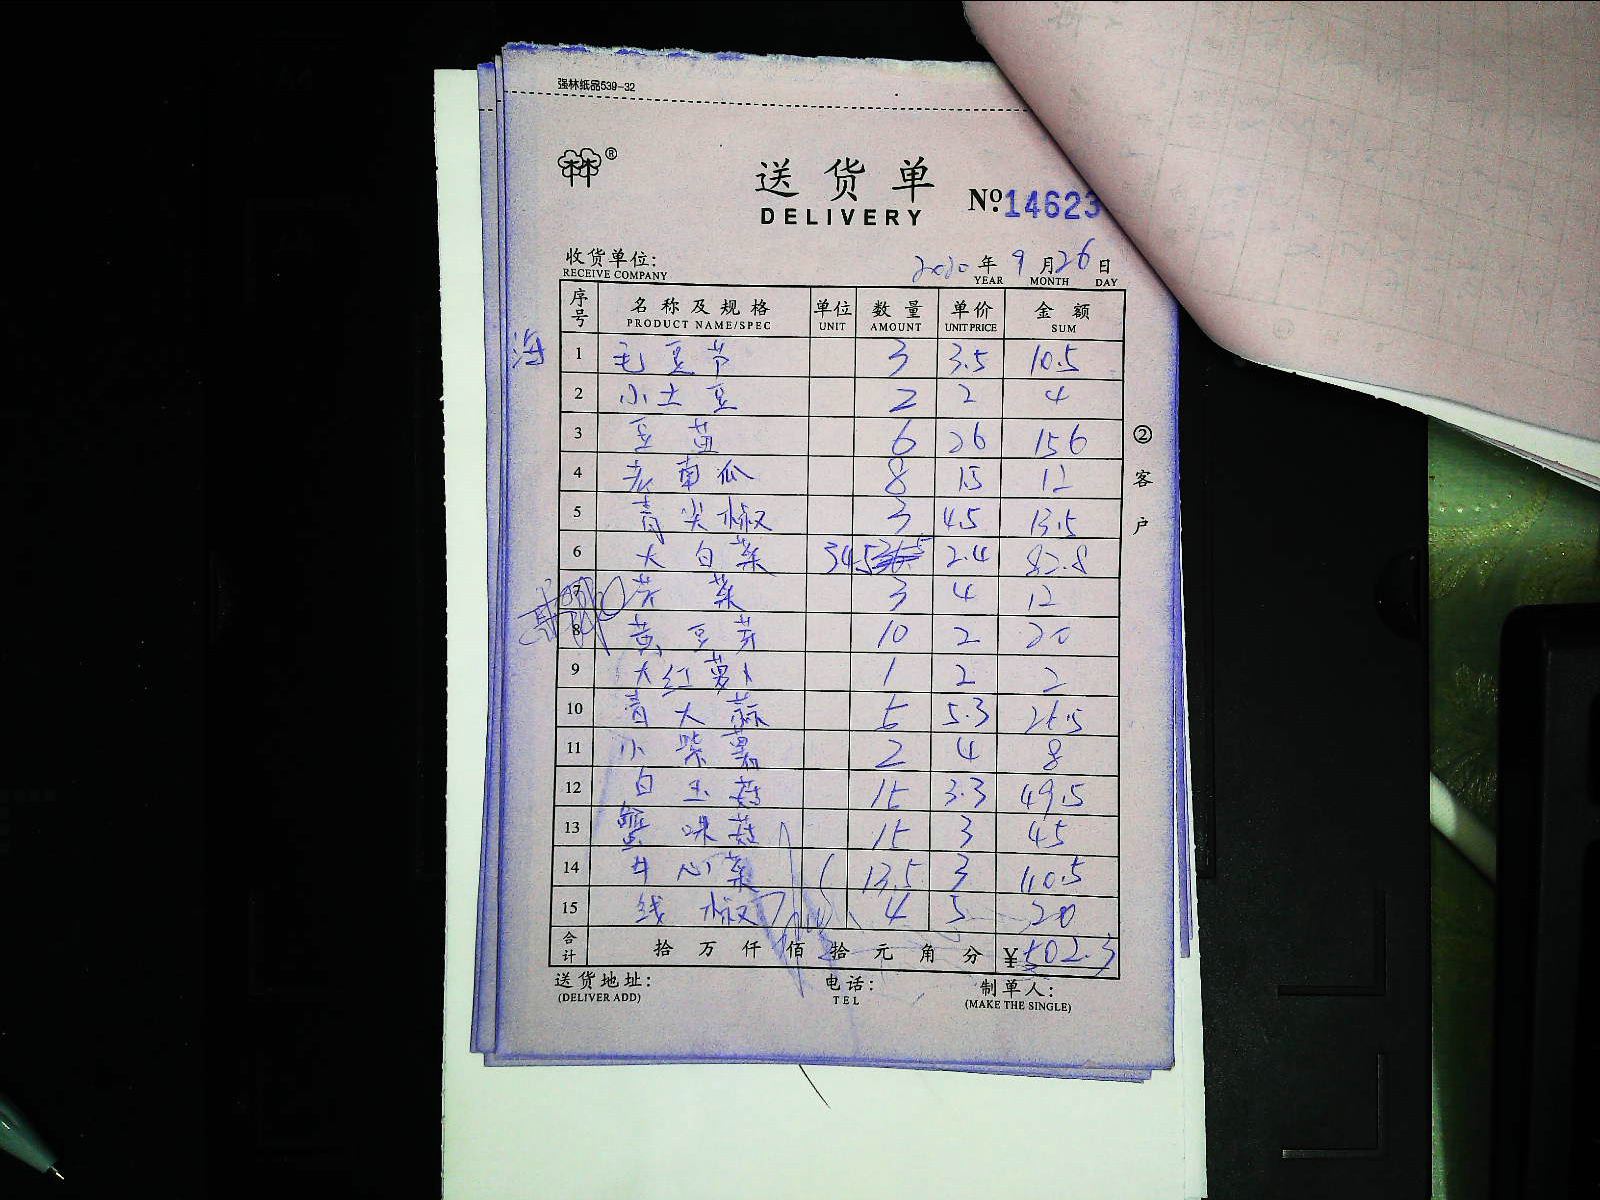 强林纸品539-32
林®
送货单
DELIVERY
Nº.14623
收货单位:
RECEIVE COMPANY
2020年9月26日
YEAR MONTH DAY
序号 名称及规格 单位 数量 单价 金额
PRODUCT NAME/SPEC UNIT AMOUNT UNIT PRICE SUM
1 毛豆节 3 3.5 10.5
2 小土豆 2 2 4
3 豆苗 6 26 156
4 老南瓜 8 15 12
5 青尖椒 3 4.5 13.5
6 大白菜 34.5 2.4 82.8
7 芹菜 3 4 12
8 黄豆芽 10 2 20
9 大红萝卜 1 2 2
10 青大蒜 5 5.3 26.5
11 小紫薯 2 4 8
12 白玉菇 15 3.3 49.5
13 蟹味菇 15 3 45
14 牛心菜 13.5 3 40.5
15 线椒 4 5 20
合计 拾万仟佰拾元角分 ¥502.3
②客户
送货地址: 电话: 制单人:
(DELIVER ADD) TEL (MAKE THE SINGLE)